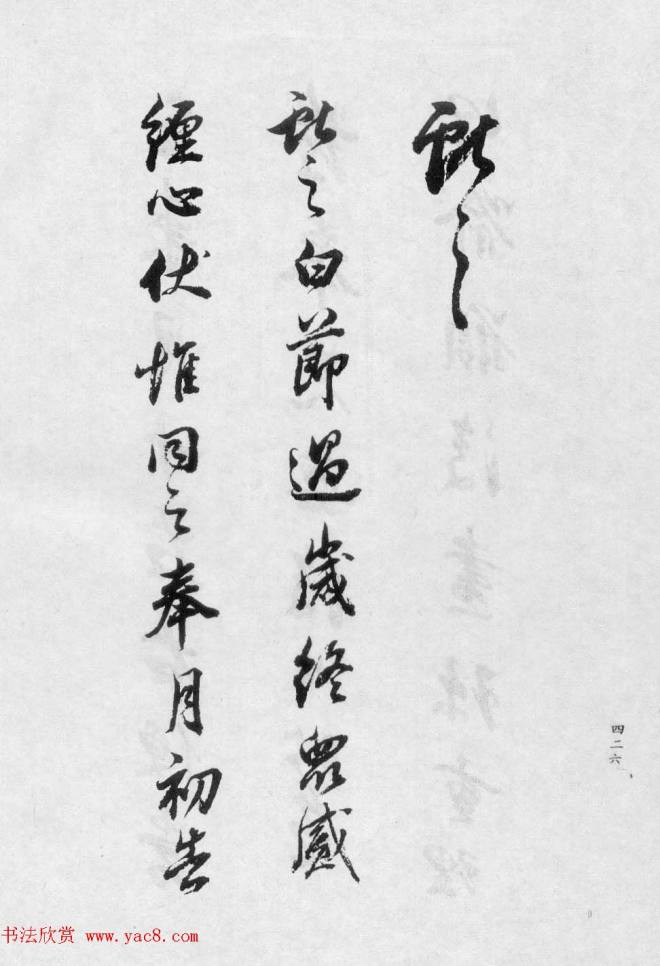 獻之
獻之白節過歲終眾感
纏心伏惟同之奉月初告
四二六
书法欣赏 www.yac8.com